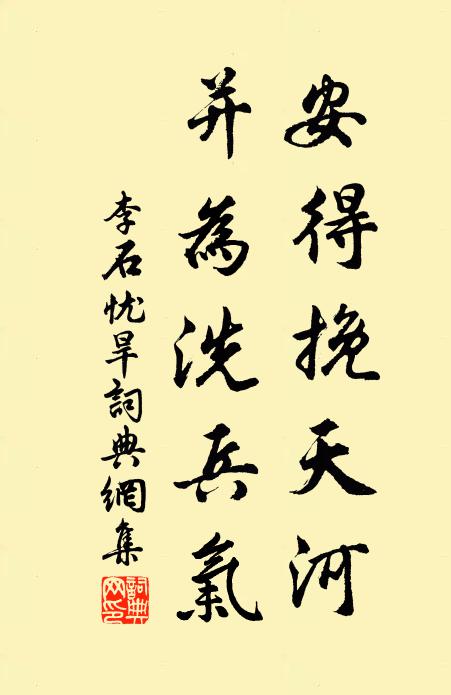 安得挽天河
并為洗兵氣
李石忧旱詞典網集
詞典網